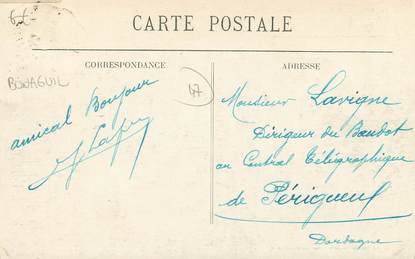 6€
CARTE POSTALE
CORRESPONDANCE
ADRESSE
BONAGUIL
47
amical Bonjour
Monsieur Lavigne
Dirigeur du Baudot
au Central Télégraphique
de Périgueux
Dordogne